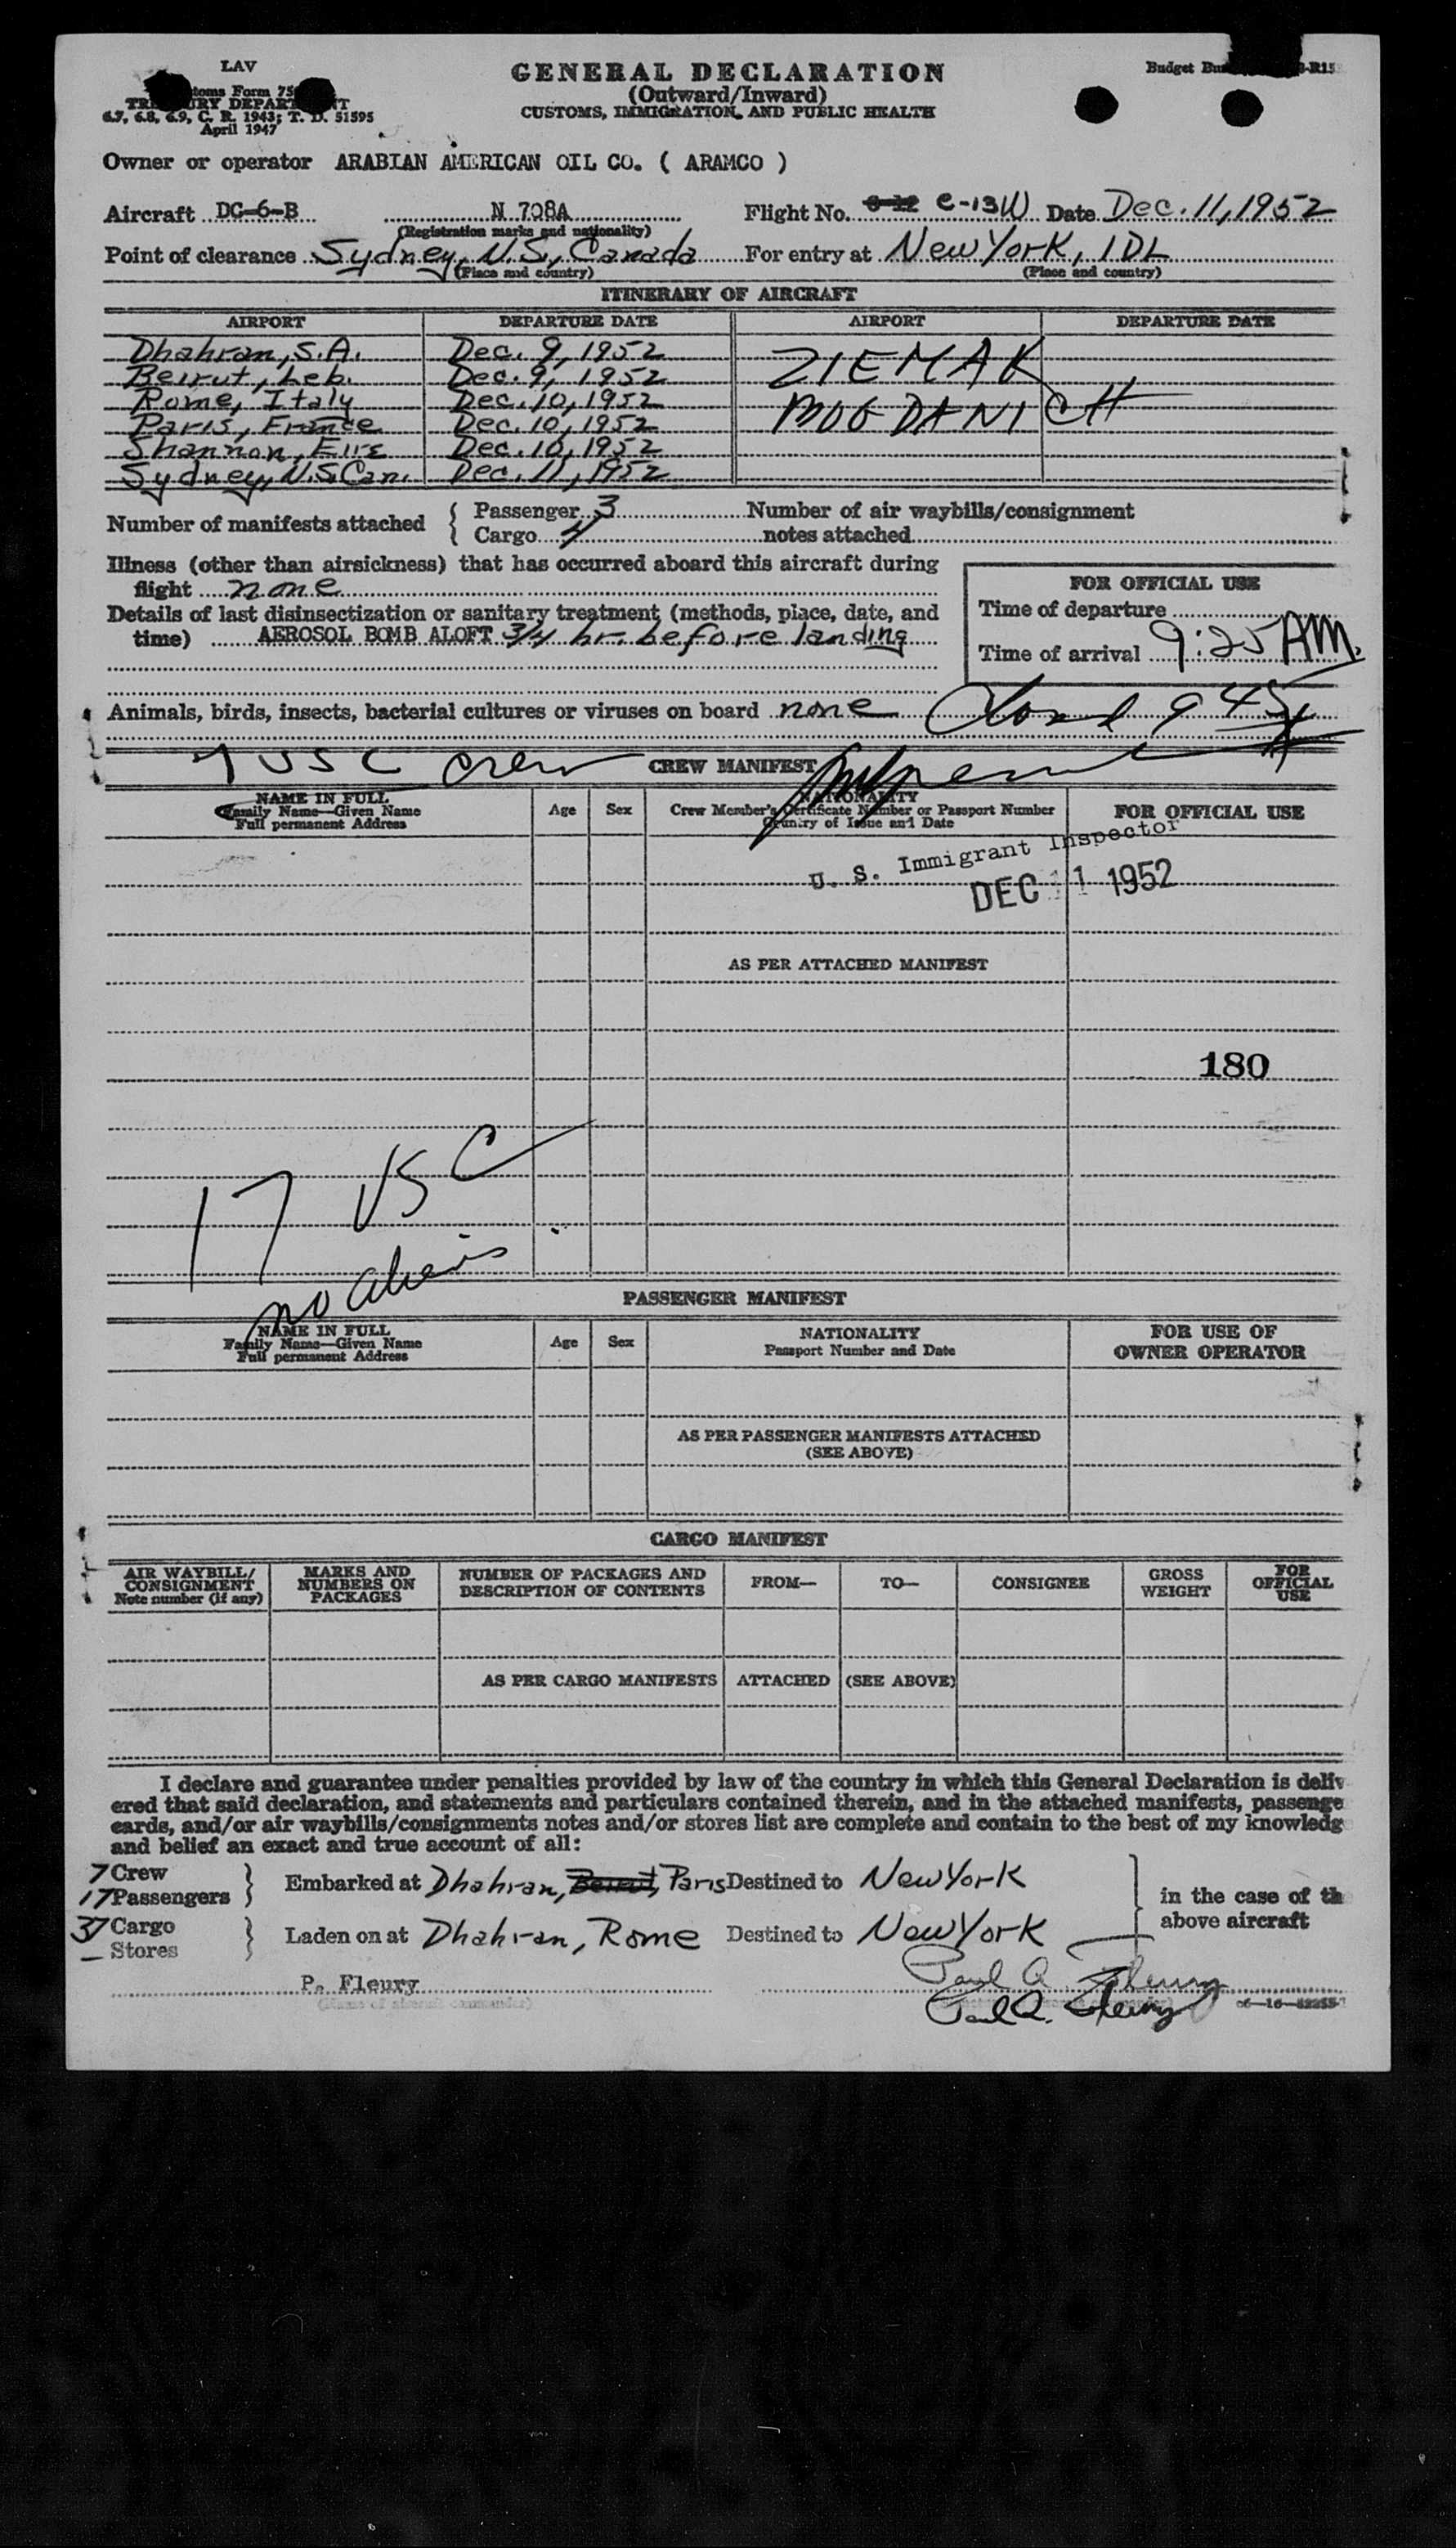 LAV
GENERAL DECLARATION
(Outward/Inward)
CUSTOMS, IMMIGRATION, AND PUBLIC HEALTH
Budget
Form 75
6.7, 6.8, 6.9, C. R. 1943; T. D. 51595
April 1947
Owner or operator ARABIAN AMERICAN OIL CO. ( ARAMCO )
Aircraft DC-6-B N 708A Flight No. C-13W Date Dec. 11, 1952
(Registration marks and nationality)
Point of clearance Sydney, N.S., Canada For entry at New York, IDL
(Place and country) (Place and country)
ITINERARY OF AIRCRAFT
AIRPORT DEPARTURE DATE AIRPORT DEPARTURE DATE
Dhahran, S.A. Dec. 9, 1952 ZIEMAK
Beirut, Leb. Dec. 9, 1952
Rome, Italy Dec. 10, 1952 BOGDANICH
Paris, France Dec. 10, 1952
Shannon, Eire Dec. 10, 1952
Sydney, N.S. Can. Dec. 11, 1952
Number of manifests attached { Passenger 3 Number of air waybills/consignment
Cargo 4 notes attached
Illness (other than airsickness) that has occurred aboard this aircraft during
flight none
FOR OFFICIAL USE
Details of last disinsectization or sanitary treatment (methods, place, date, and
time) AEROSOL BOMB ALOFT 3/4 hr. before landing
Time of departure
Time of arrival 9:25 AM.
Animals, birds, insects, bacterial cultures or viruses on board none
945
7 USC Crew
CREW MANIFEST
NAME IN FULL
Family Name—Given Name
Full permanent Address
Age Sex
NATIONALITY
Crew Member's Certificate Number or Passport Number
Country of Issue and Date
FOR OFFICIAL USE
U. S. Immigrant Inspector
DEC 11 1952
AS PER ATTACHED MANIFEST
180
17 USC
no aliens
PASSENGER MANIFEST
NAME IN FULL
Family Name—Given Name
Full permanent Address
Age Sex
NATIONALITY
Passport Number and Date
FOR USE OF
OWNER OPERATOR
AS PER PASSENGER MANIFESTS ATTACHED
(SEE ABOVE)
CARGO MANIFEST
AIR WAYBILL/
CONSIGNMENT
Note number (if any)
MARKS AND
NUMBERS ON
PACKAGES
NUMBER OF PACKAGES AND
DESCRIPTION OF CONTENTS
FROM— TO— CONSIGNEE
GROSS
WEIGHT
FOR
OFFICIAL
USE
AS PER CARGO MANIFESTS ATTACHED (SEE ABOVE)
I declare and guarantee under penalties provided by law of the country in which this General Declaration is deliv
ered that said declaration, and statements and particulars contained therein, and in the attached manifests, passenge
cards, and/or air waybills/consignments notes and/or stores list are complete and contain to the best of my knowledg
and belief an exact and true account of all:
7 Crew
17 Passengers } Embarked at Dhahran, Beirut, Paris Destined to New York
37 Cargo
— Stores } Laden on at Dhahran, Rome Destined to New York
in the case of th
above aircraft
P. Fleury
(Name of aircraft commander)
Paul A. Fleury
Paul A. Fleury